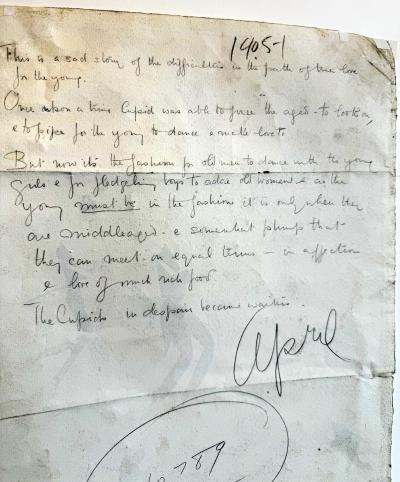 1905-1
This is a sad story of the difficulties in the path of true love
for the young.
Once upon a time Cupid was able to force the aged - to look on,
& to pipe for the young to dance & make love to
But now it's the fashion for old men to dance with the young
girls & for fledgeling boys to adore old women & as the
young must be in the fashion it is only when they
are middleaged & somewhat plump that
they can meet on equal terms - in affection
& love of much rich food.
The Cupids in despair became waiters.
April
789